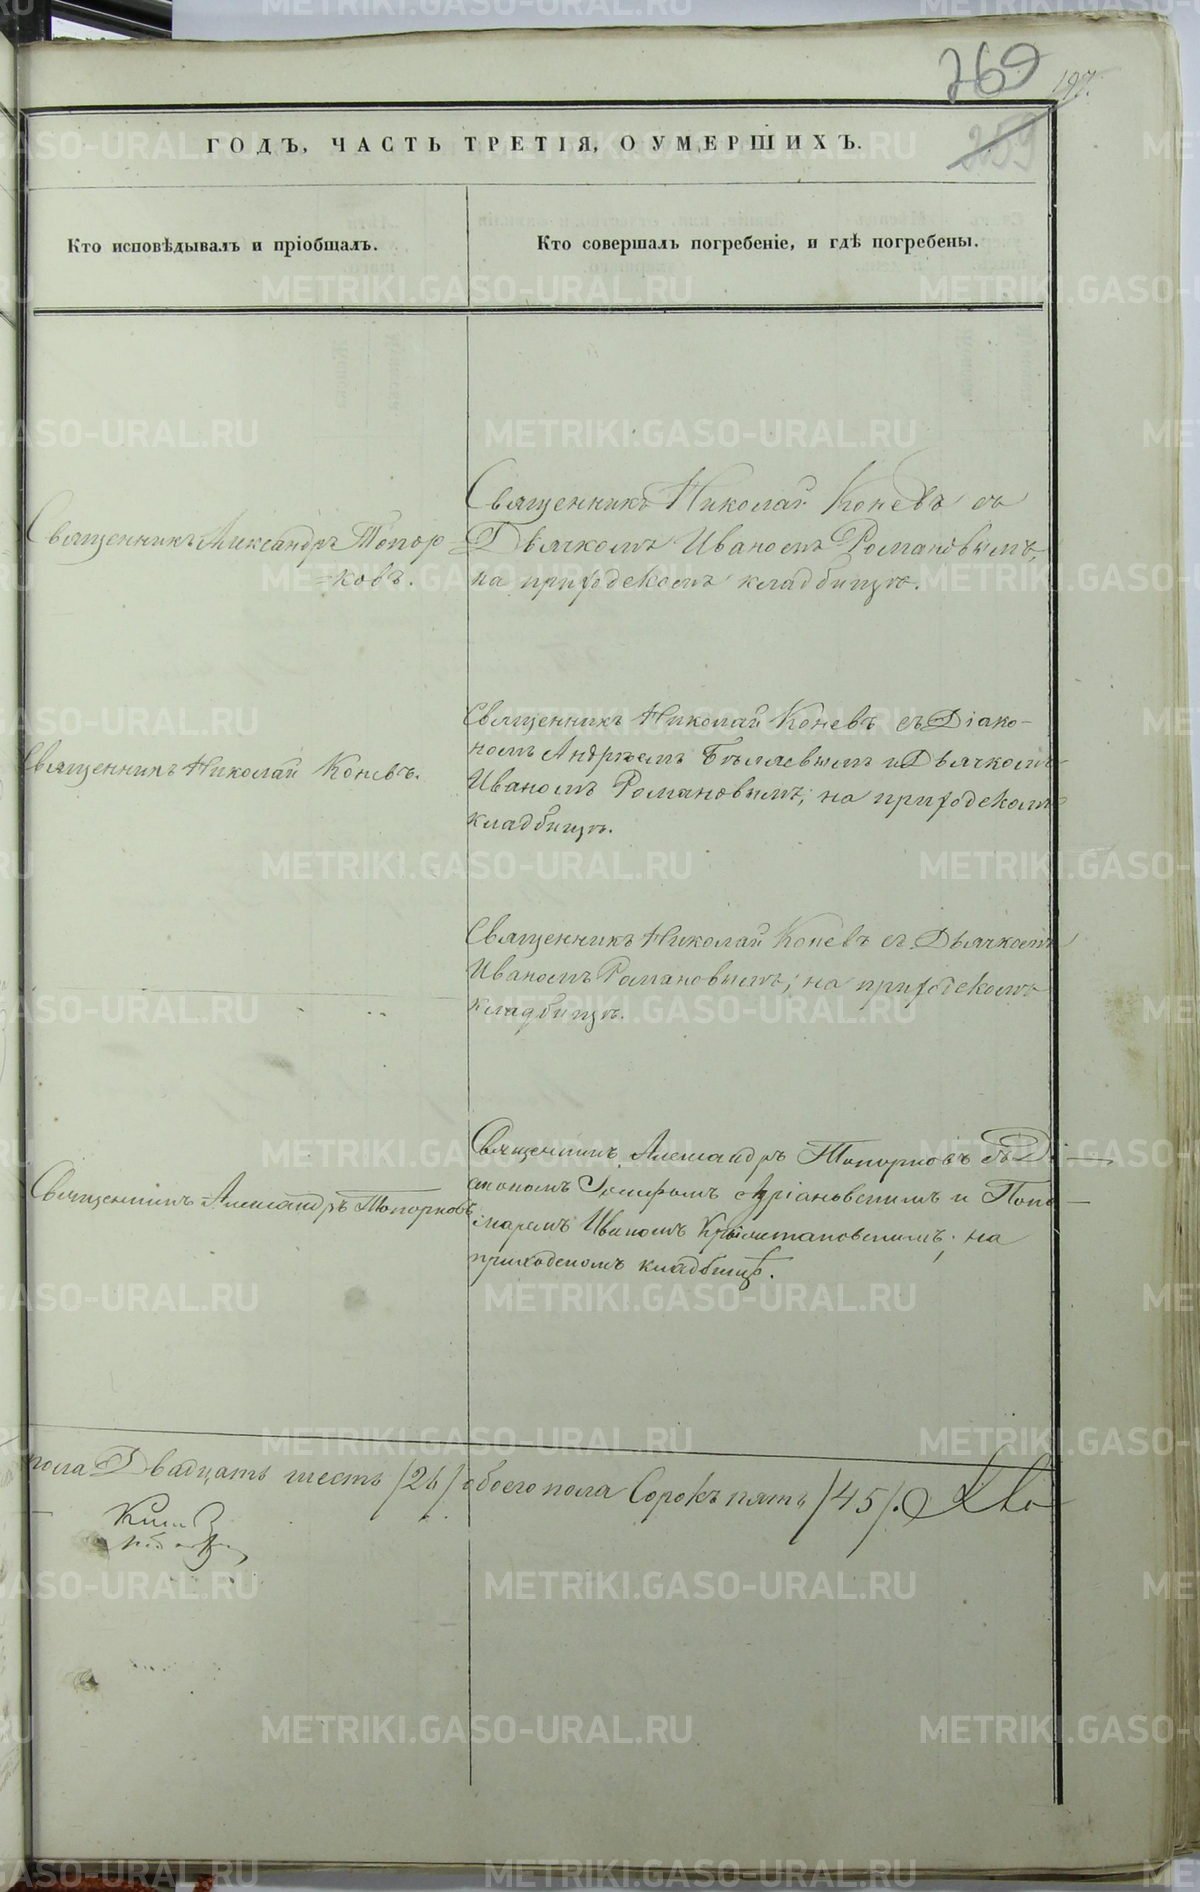 269
197.
259
ГОДЪ, ЧАСТЬ ТРЕТІЯ, О УМЕРШИХЪ.
Кто исповѣдывалъ и пріобщалъ.
Кто совершалъ погребеніе, и гдѣ погребены.
Священникъ Александръ Топор
=ковъ.
Священникъ Николай Коневъ съ
Дьячкомъ Иваномъ Романовымъ,
на приходскомъ кладбищѣ.
Священникъ Николай Коневъ.
Священникъ Николай Коневъ съ Діако-
номъ Андрѣемъ Бѣляевымъ и Дьячкомъ
Иваномъ Романовымъ; на приходскомъ
кладбищѣ.
Священникъ Николай Коневъ съ Дьячкомъ
Иваномъ Романовымъ; на приходскомъ
кладбищѣ.
Священникъ Александръ Топорковъ
Священникъ Александръ Топорковъ съ Ді
акономъ Іосифомъ Адріановскимъ и Поно
маремъ Иваномъ; на
приходскомъ кладбищѣ.
пола Двадцать шесть /26/ обоего пола Сорокъ пять /45/.
METRIKI.GASO-URAL.RU